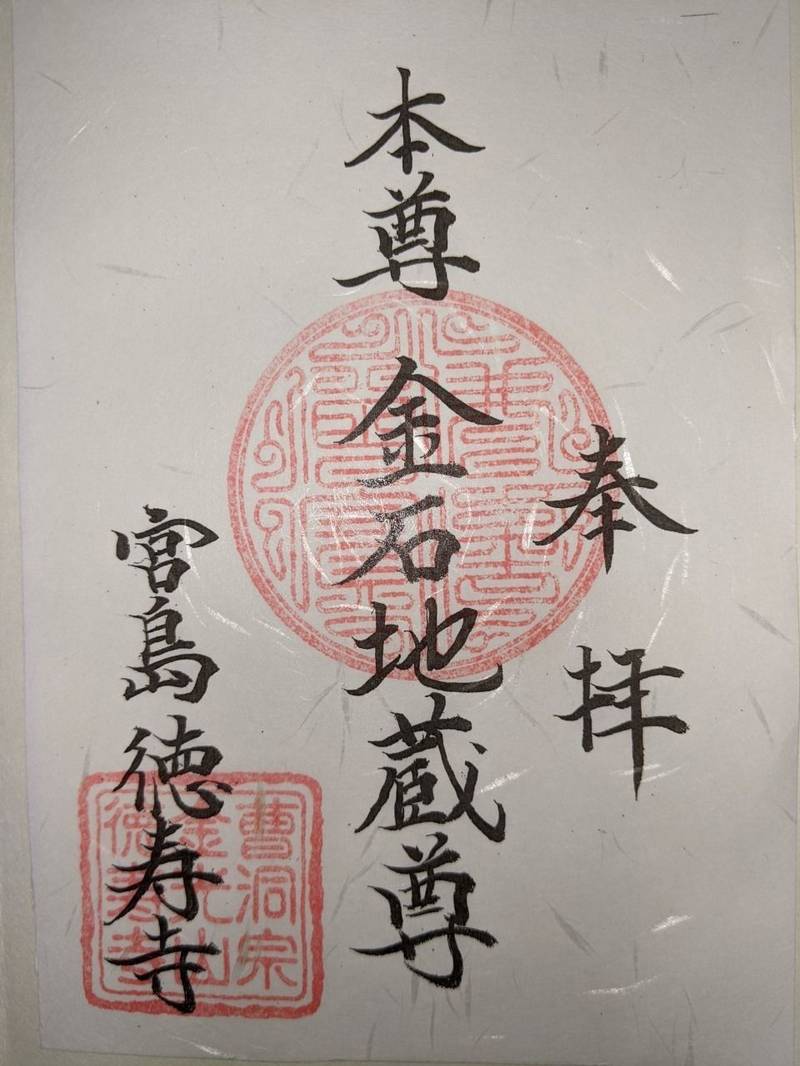 奉拝
本尊 金石地蔵尊
宮島 徳寿寺
曹洞宗
金光山
徳寿寺